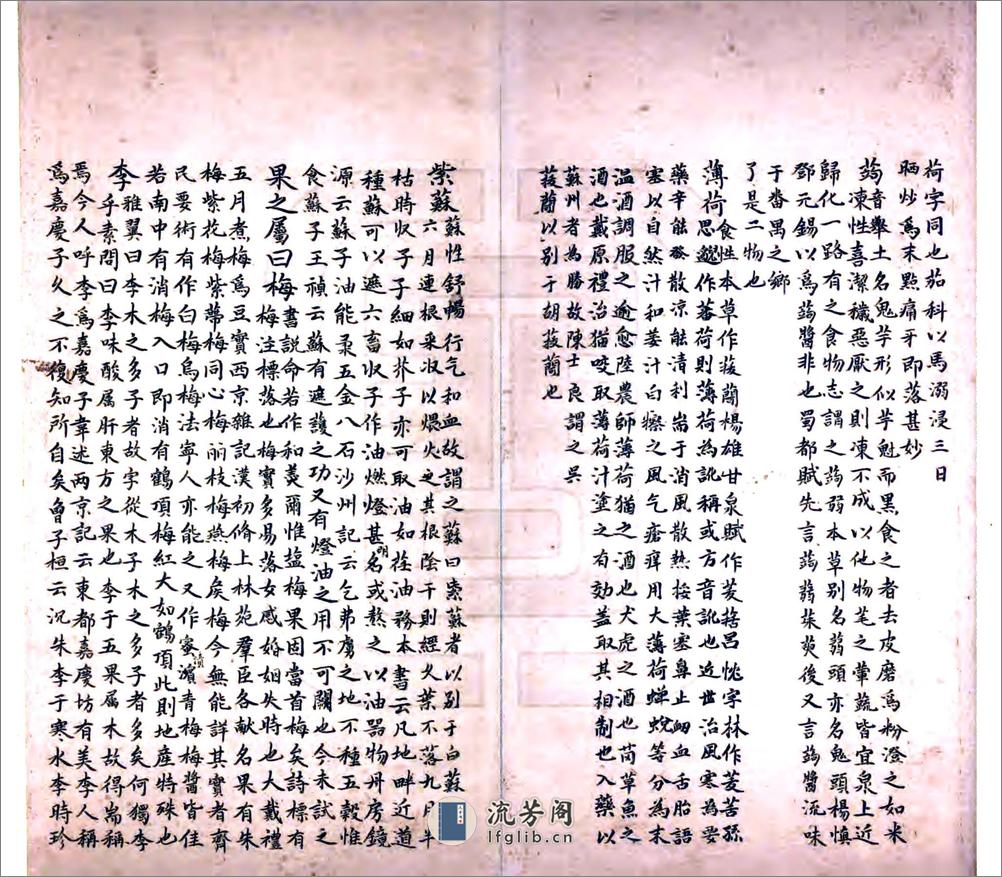 荷字同也茄科以馬溺浸三日
晒炒爲末點痛牙即落甚妙
蒟音舉土名鬼芋形似芋魁而黑食之者去皮磨爲粉澄之如米
凍性喜潔穢惡厭之則凍不成以他物芼之葷蔬皆宜泉上近
歸化一路有之食物志謂之蒟弱本草别名蒻頭亦名鬼頭楊慎
鄧元錫以爲蒟醬非也蜀都賦先言蒟蒻茱萸後又言蒟醬流味
于番禺之鄉
了是二物也
薄荷食性本草作菝䕞楊雄甘泉賦作茇𦯔吕忱字林作茇苦孫
思邈作蕃荷則薄荷爲訛稱或方音訛也近世治風寒爲要
藥辛能發散凉能清利耑于消風散熱挼葉塞鼻止衂血舌胎語
塞以自然汁和姜汁白蜜擦之風气瘡痒用大薄荷蟬蛻等分為末
温酒調服之逾愈陸農師薄荷猫之酒也犬虎之酒也茼草魚之
酒也戴原禮治猫咬取薄荷汁塗之有効盖取其相制也入藥以
蘇州者為勝故陳士良謂之吴
菝䕞以别于胡菝䕞也
紫蘇蘇性舒暢行气和血故謂之蘇曰紫蘇者以别于白蘇
六月連根采收以煨火之其根陰干則經久葉不落九月半
枯時収子子細如芥子亦可取油如荏油務本書云凡地畔近道
種蘇可以遮六畜収子作油燃燈甚明名或熬之以油器物丹房鏡
源云蘇子油能柔五金八石沙州記云乞弗虜之地不種五穀惟
食蘇子王禎云蘇有遮護之功又有燈油之用不可闕也今未試之
果之屬曰梅梅書說命若作和羮爾惟盐梅果固當首梅矣詩標有
梅注標落也梅實多易落女感婚姻失時也大戴禮
五月煮梅爲豆實西京雜記漢初脩上林苑羣臣各献名果有朱
梅紫花梅紫蒂梅同心梅丽枝梅燕梅矦梅今無能詳其實者齊
民要術有作白梅烏梅法寧人亦能之又作蜜漬濱青梅梅醬皆佳
若南中有消梅入口即消有鶴頂梅紅大如鶴頂此則地産特殊也
李雅翼曰李木之多子者故字從木子木之多子者多矣何獨李
乎素問曰李味酸属肝東方之果也李于五果属木故得耑稱
焉今人呼李爲嘉慶子韋述两京記云東都嘉慶坊有美李人稱
爲嘉慶子久之不復知所自矣魯子桓云沉朱李于寒水李時珍
流芳阁
lfglib.com